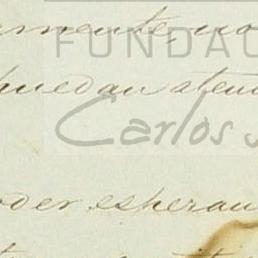 amente, no
FUNDAC
puedan aten
Carlos S
oder esperan